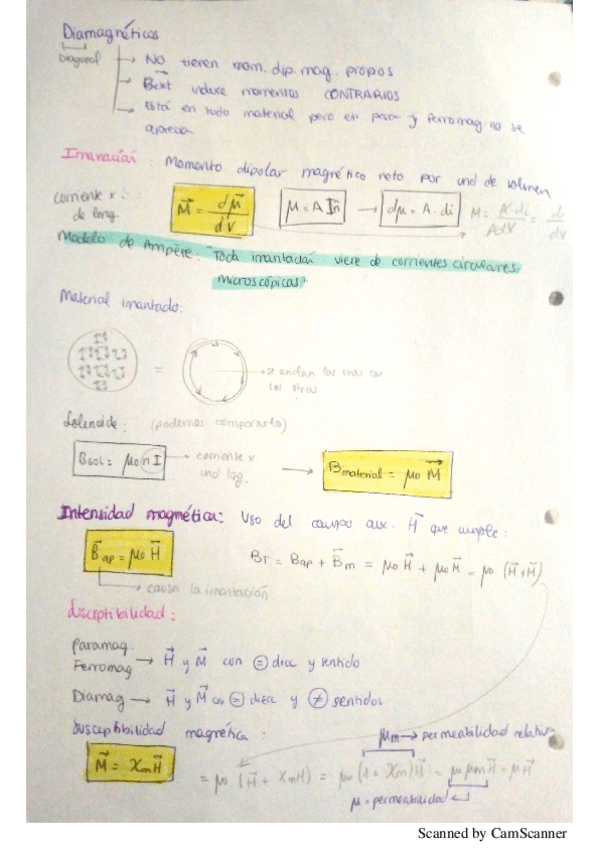 Diamagnéticos
Diagonal → NO tienen mom. dip. mag. propios
→ B⃗ext induce momentos CONTRARIOS
→ Está en todo material pero en para y ferromag. no se aprecia
Imanación: Momento dipolar magnético neto por und de volumen
corriente x
de long.
M⃗ = dμ⃗/dV
μ = A I n̂ → dμ = A · di
M = A·di/AdV = di/dV
Modelo de Ampère: "Toda imantación viene de corrientes circulares
microscópicas".
Material imantado:
= → se anulan las unas con
las otras
Solenoide: (podemos compararlo)
Bsol = μo n I → corriente x
und log.
→ Bmaterial = μo M⃗
Intensidad magnética: Uso del campo aux. H⃗ que cumple:
B⃗ap = μo H⃗
BT = Bap + B⃗m = μo H⃗ + μo M⃗ = μo (H⃗+M⃗)
→ causa la imantación
Susceptibilidad:
Paramag.
Ferromag → H⃗ y M⃗ con = direc y sentido
Diamag → H⃗ y M⃗ con = direc y ≠ sentidos
Susceptibilidad magnética:
μm → permeabilidad relativa
M⃗ = XmH⃗
= μo (H⃗ + XmH) = μo (1 + Xm)H⃗ = μo μm H⃗ = μH⃗
μ = permeabilidad
Scanned by CamScanner